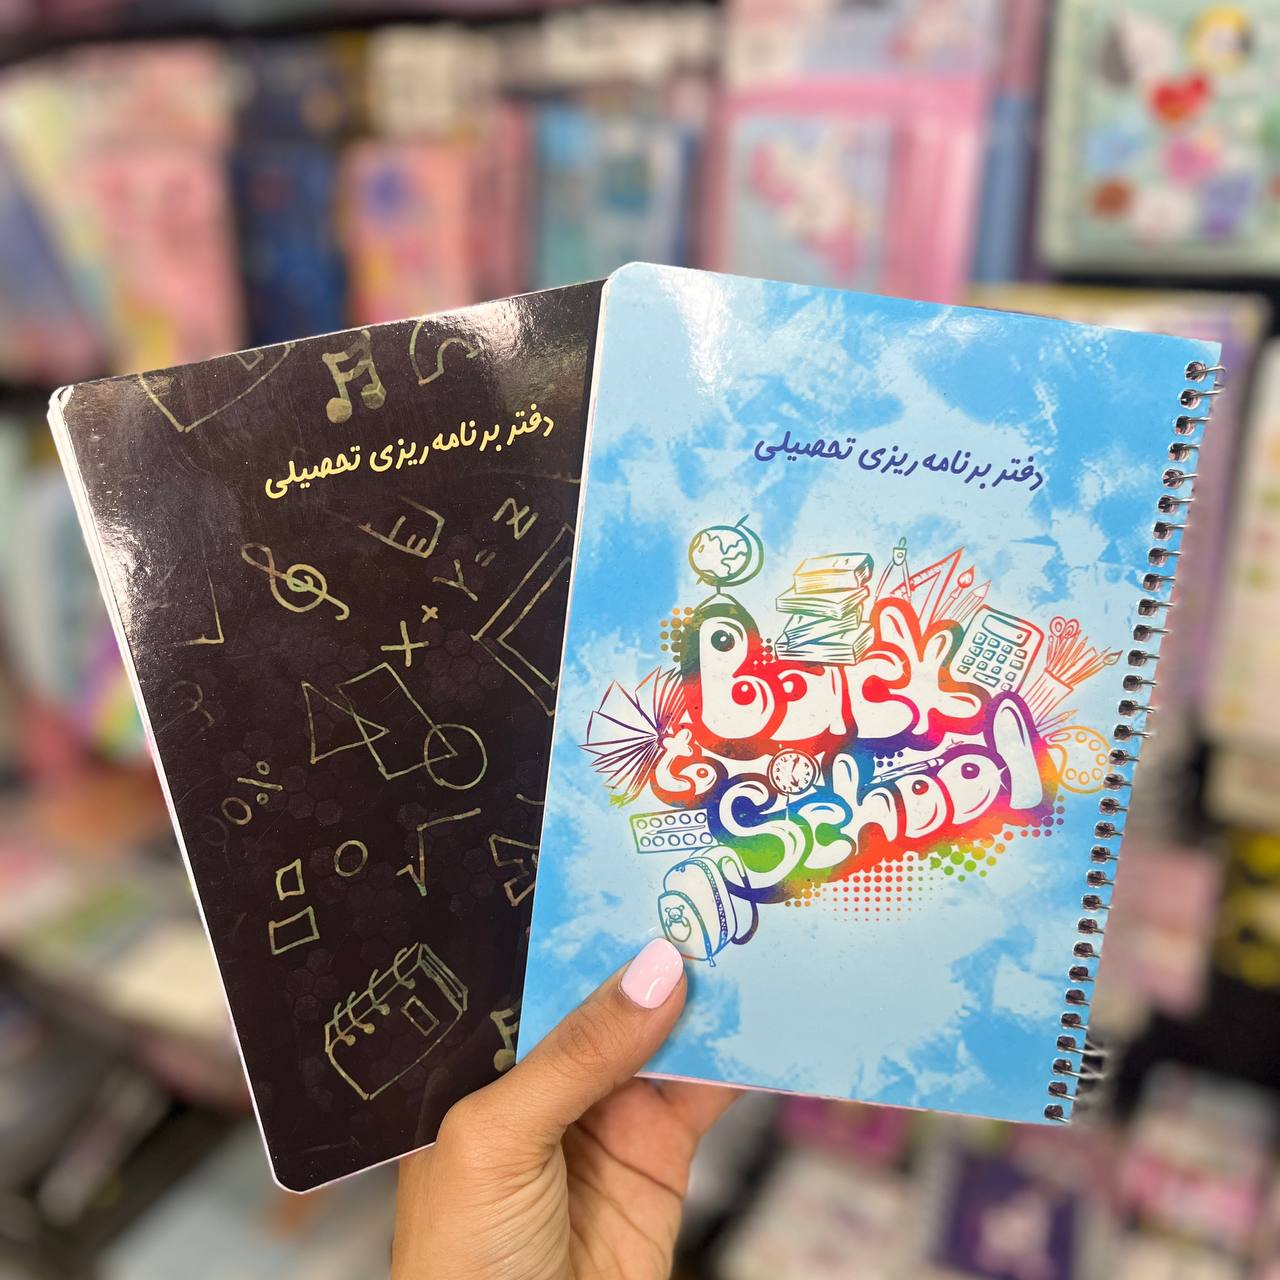 دفتر برنامه ریزی تحصیلی
X + Y = Z
%
√
دفتر برنامه ریزی تحصیلی
Back
to
School